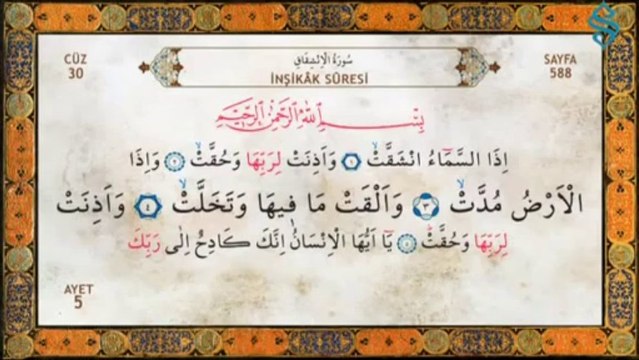 CÜZ
30
سُورَةُ الْاِنْشِقَاقِ
İNŞİKÂK SÛRESİ
SAYFA
588
بِسْمِ اللّٰهِ الرَّحْمٰنِ الرَّحِيمِ
اِذَا السَّمَٓاءُ انْشَقَّتْۙ ﴿١﴾ وَاَذِنَتْ لِرَبِّهَا وَحُقَّتْۙ ﴿٢﴾ وَاِذَا
الْاَرْضُ مُدَّتْۙ ﴿٣﴾ وَاَلْقَتْ مَا ف۪يهَا وَتَخَلَّتْۙ ﴿٤﴾ وَاَذِنَتْ
لِرَبِّهَا وَحُقَّتْۜ ﴿٥﴾ يَٓا اَيُّهَا الْاِنْسَانُ اِنَّكَ كَادِحٌ اِلٰى رَبِّكَ
AYET
5